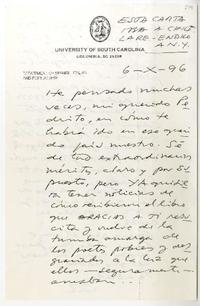 ESTA CARTA
IBA A CHILE
LARE-ENDIKO
A N.Y.
UNIVERSITY OF SOUTH CAROLINA
COLUMBIA, SC 29208
6-X-96
He pensado muchas
veces, mi querido Pe
drito, en cómo te
habrá ido en ese
país nuestro. Sé
de tus extraordinarios
méritos, claro y por su
puesto, pero YA quisie
ra tener noticias de
cómo recibieron el libro
que GRACIAS A TI resu
cita y vuelve de la
tumba amarga de
los poetas pobres y des
graciados a la luz que
ellos — seguramente —
amaban...